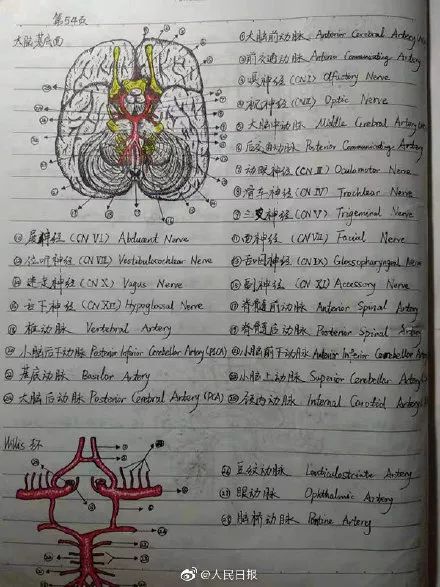 第54页
大脑基底面
①大脑前动脉 Anterior Cerebral Artery
②前交通动脉 Anterior Communicating Artery
③嗅神经 (CN I) Olfactory Nerve
④视神经 (CN II) Optic Nerve
⑤大脑中动脉 Middle Cerebral Artery
⑥后交通动脉 Posterior Communicating Artery
⑦动眼神经 (CN III) Oculomotor Nerve
⑧滑车神经 (CN IV) Trochlear Nerve
⑨三叉神经 (CN V) Trigeminal Nerve
⑩展神经 (CN VI) Abducent Nerve
⑪面神经 (CN VII) Facial Nerve
⑫位听神经 (CN VIII) Vestibulocochlear Nerve
⑬舌咽神经 (CN IX) Glossopharyngeal Nerve
⑭迷走神经 (CN X) Vagus Nerve
⑮副神经 (CN XI) Accessory Nerve
⑯舌下神经 (CN XII) Hypoglossal Nerve
⑰脊髓前动脉 Anterior Spinal Artery
⑱椎动脉 Vertebral Artery
⑲脊髓后动脉 Posterior Spinal Artery
小脑后下动脉 Posterior Inferior Cerebellar Artery (PICA)
小脑前下动脉 Anterior Inferior Cerebellar
基底动脉 Basilar Artery
小脑上动脉 Superior Cerebellar Artery
大脑后动脉 Posterior Cerebral Artery (PCA)
颈内动脉 Internal Carotid Artery
Willis 环
豆纹动脉 Lenticulostriate Artery
眼动脉 Ophthalmic Artery
脑桥动脉 Pontine Artery
@人民日报